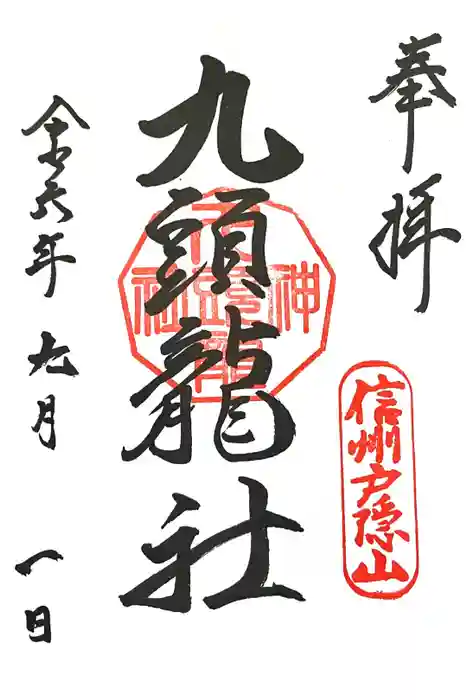 奉拝
信州戸隠山
九頭龍社
令六年九月一日